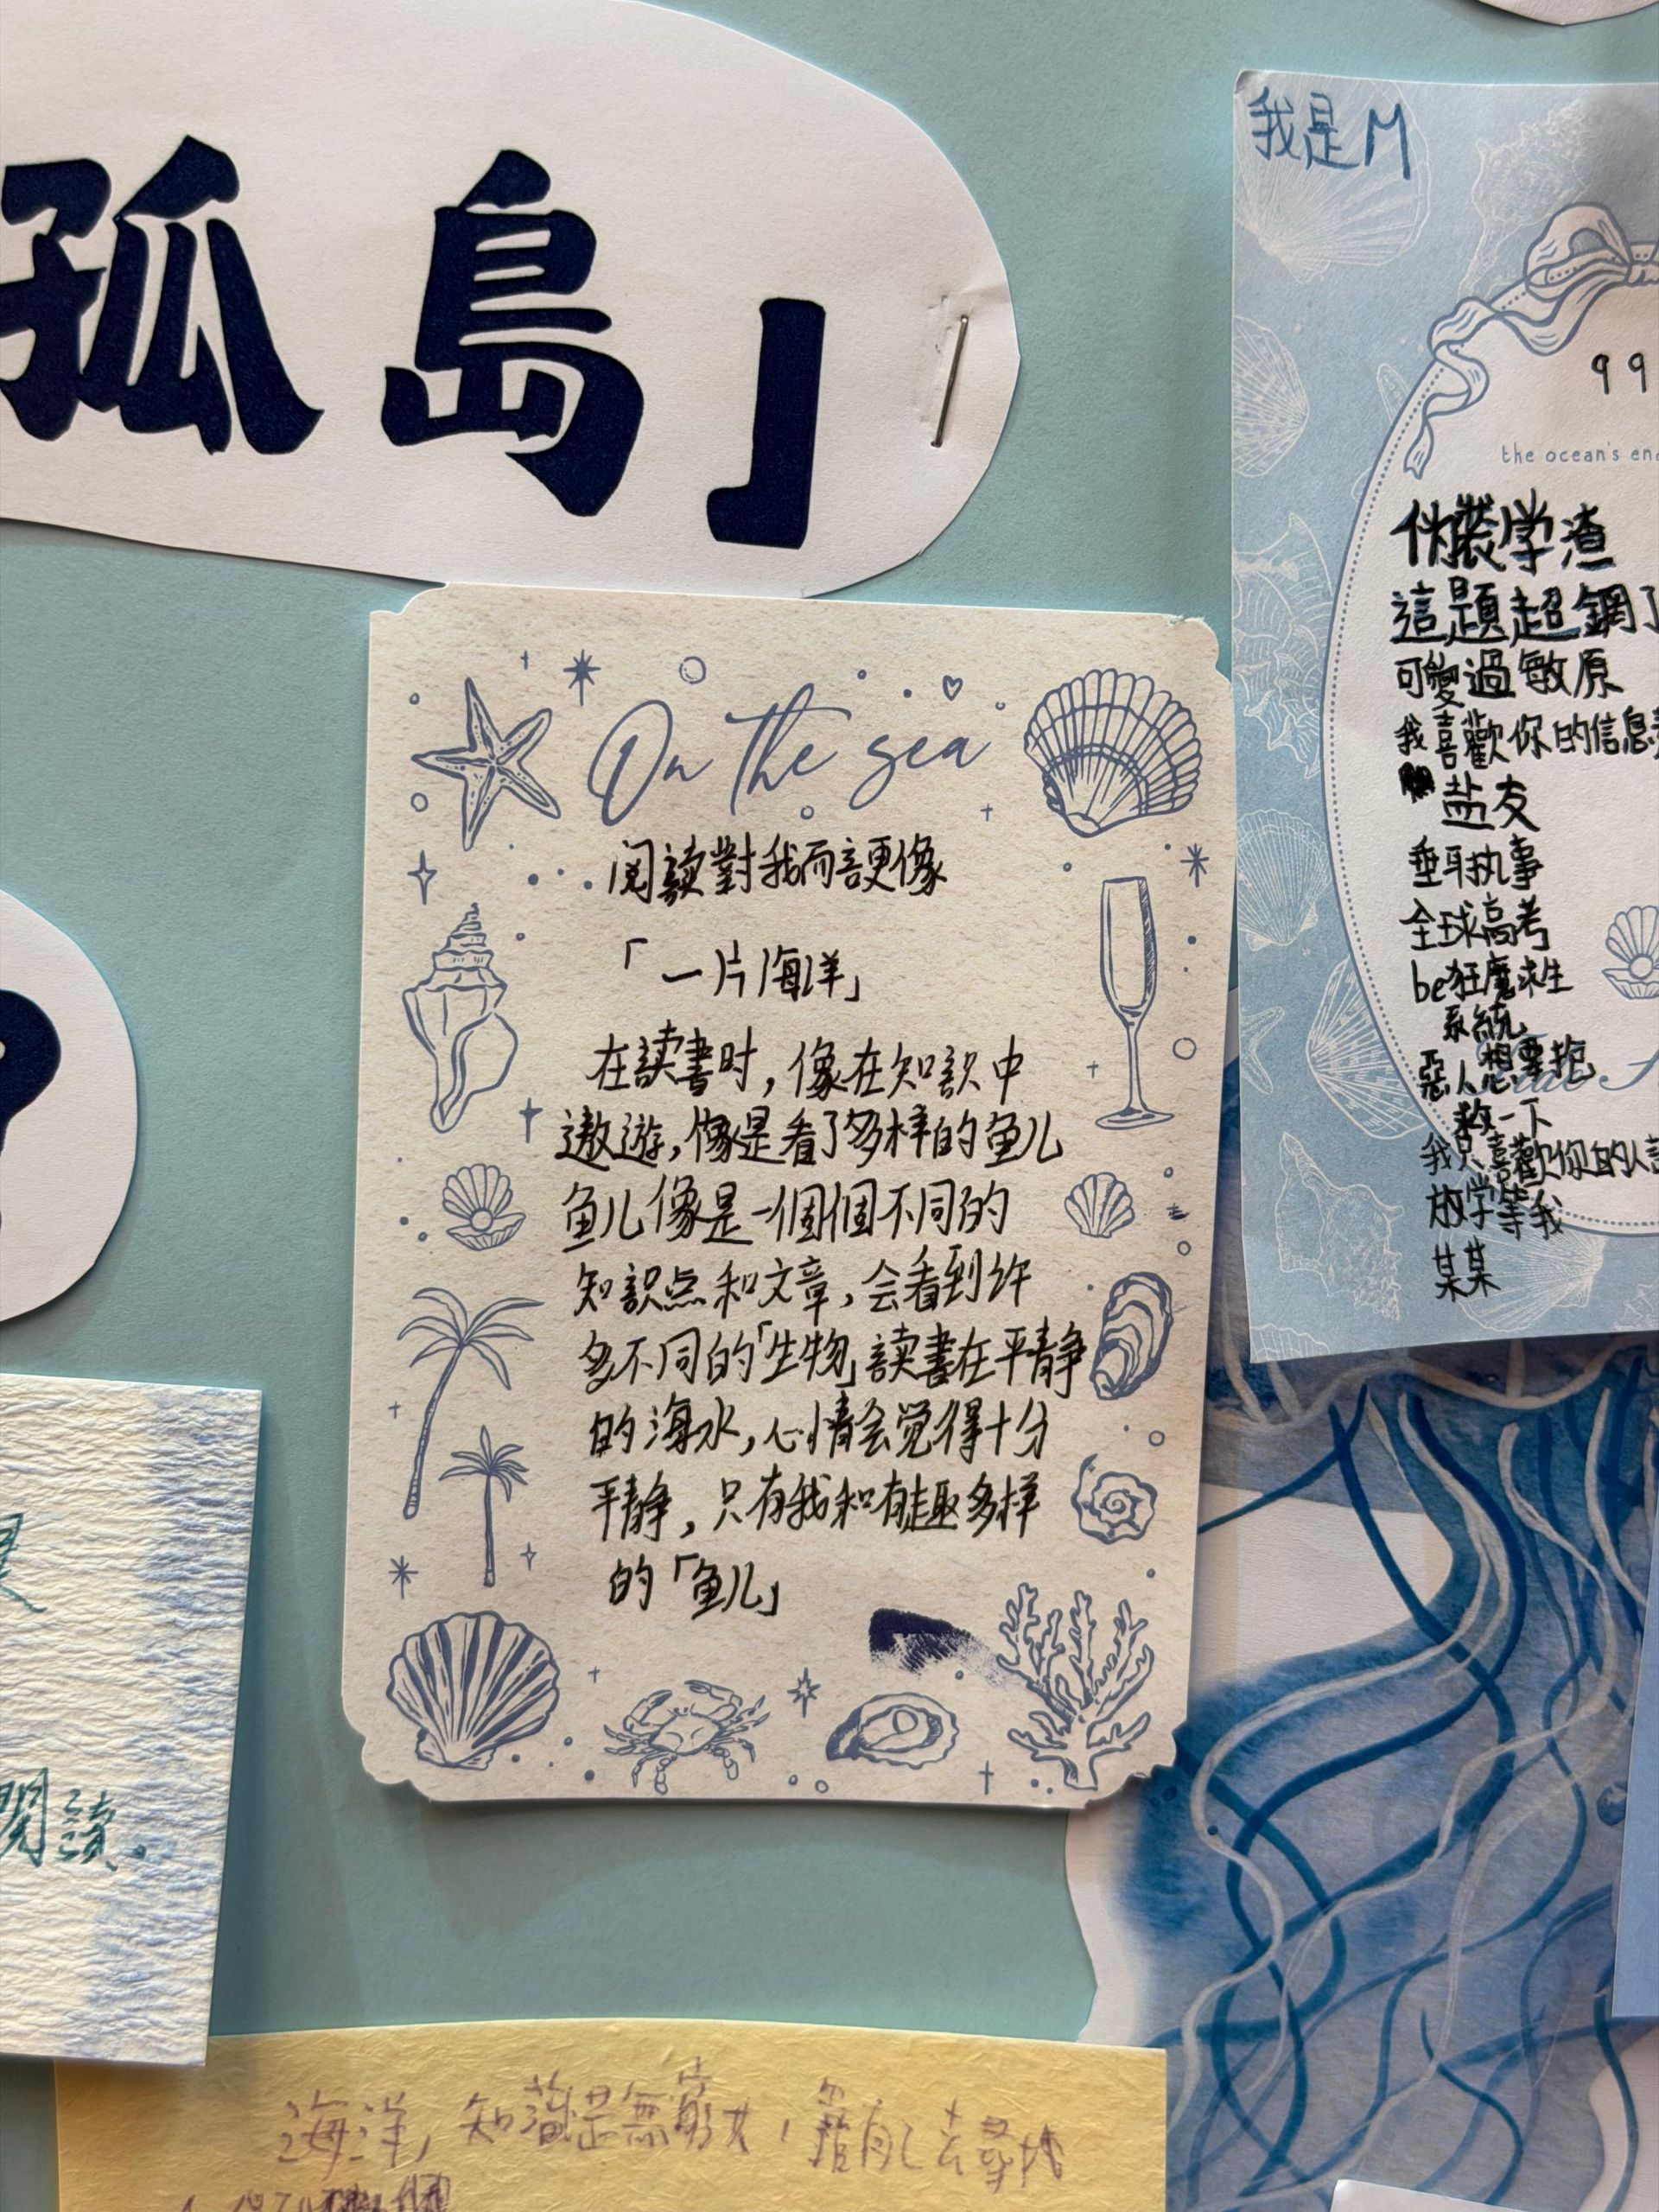 孤島」
On the sea
阅讀對我而言更像
「一片海洋」
在讀書时，像在知識中
遨遊，像是看了多样的鱼儿
鱼儿像是一個個不同的
知識点和文章，会看到许
多不同的「生物」讀書在平静
的海水，心情会觉得十分
平静，只有我和有趣多样
的「鱼儿」
我是M
99
the ocean's en
伪裝学渣
這題超綱了
可愛過敏原
我喜歡你的信息
盐友
垂耳执事
全球高考
be狂魔求生
系統
惡人想要抢
救一下
我只喜歡你的人
放学等我
某某
閱讀。
海洋，知識是無窮